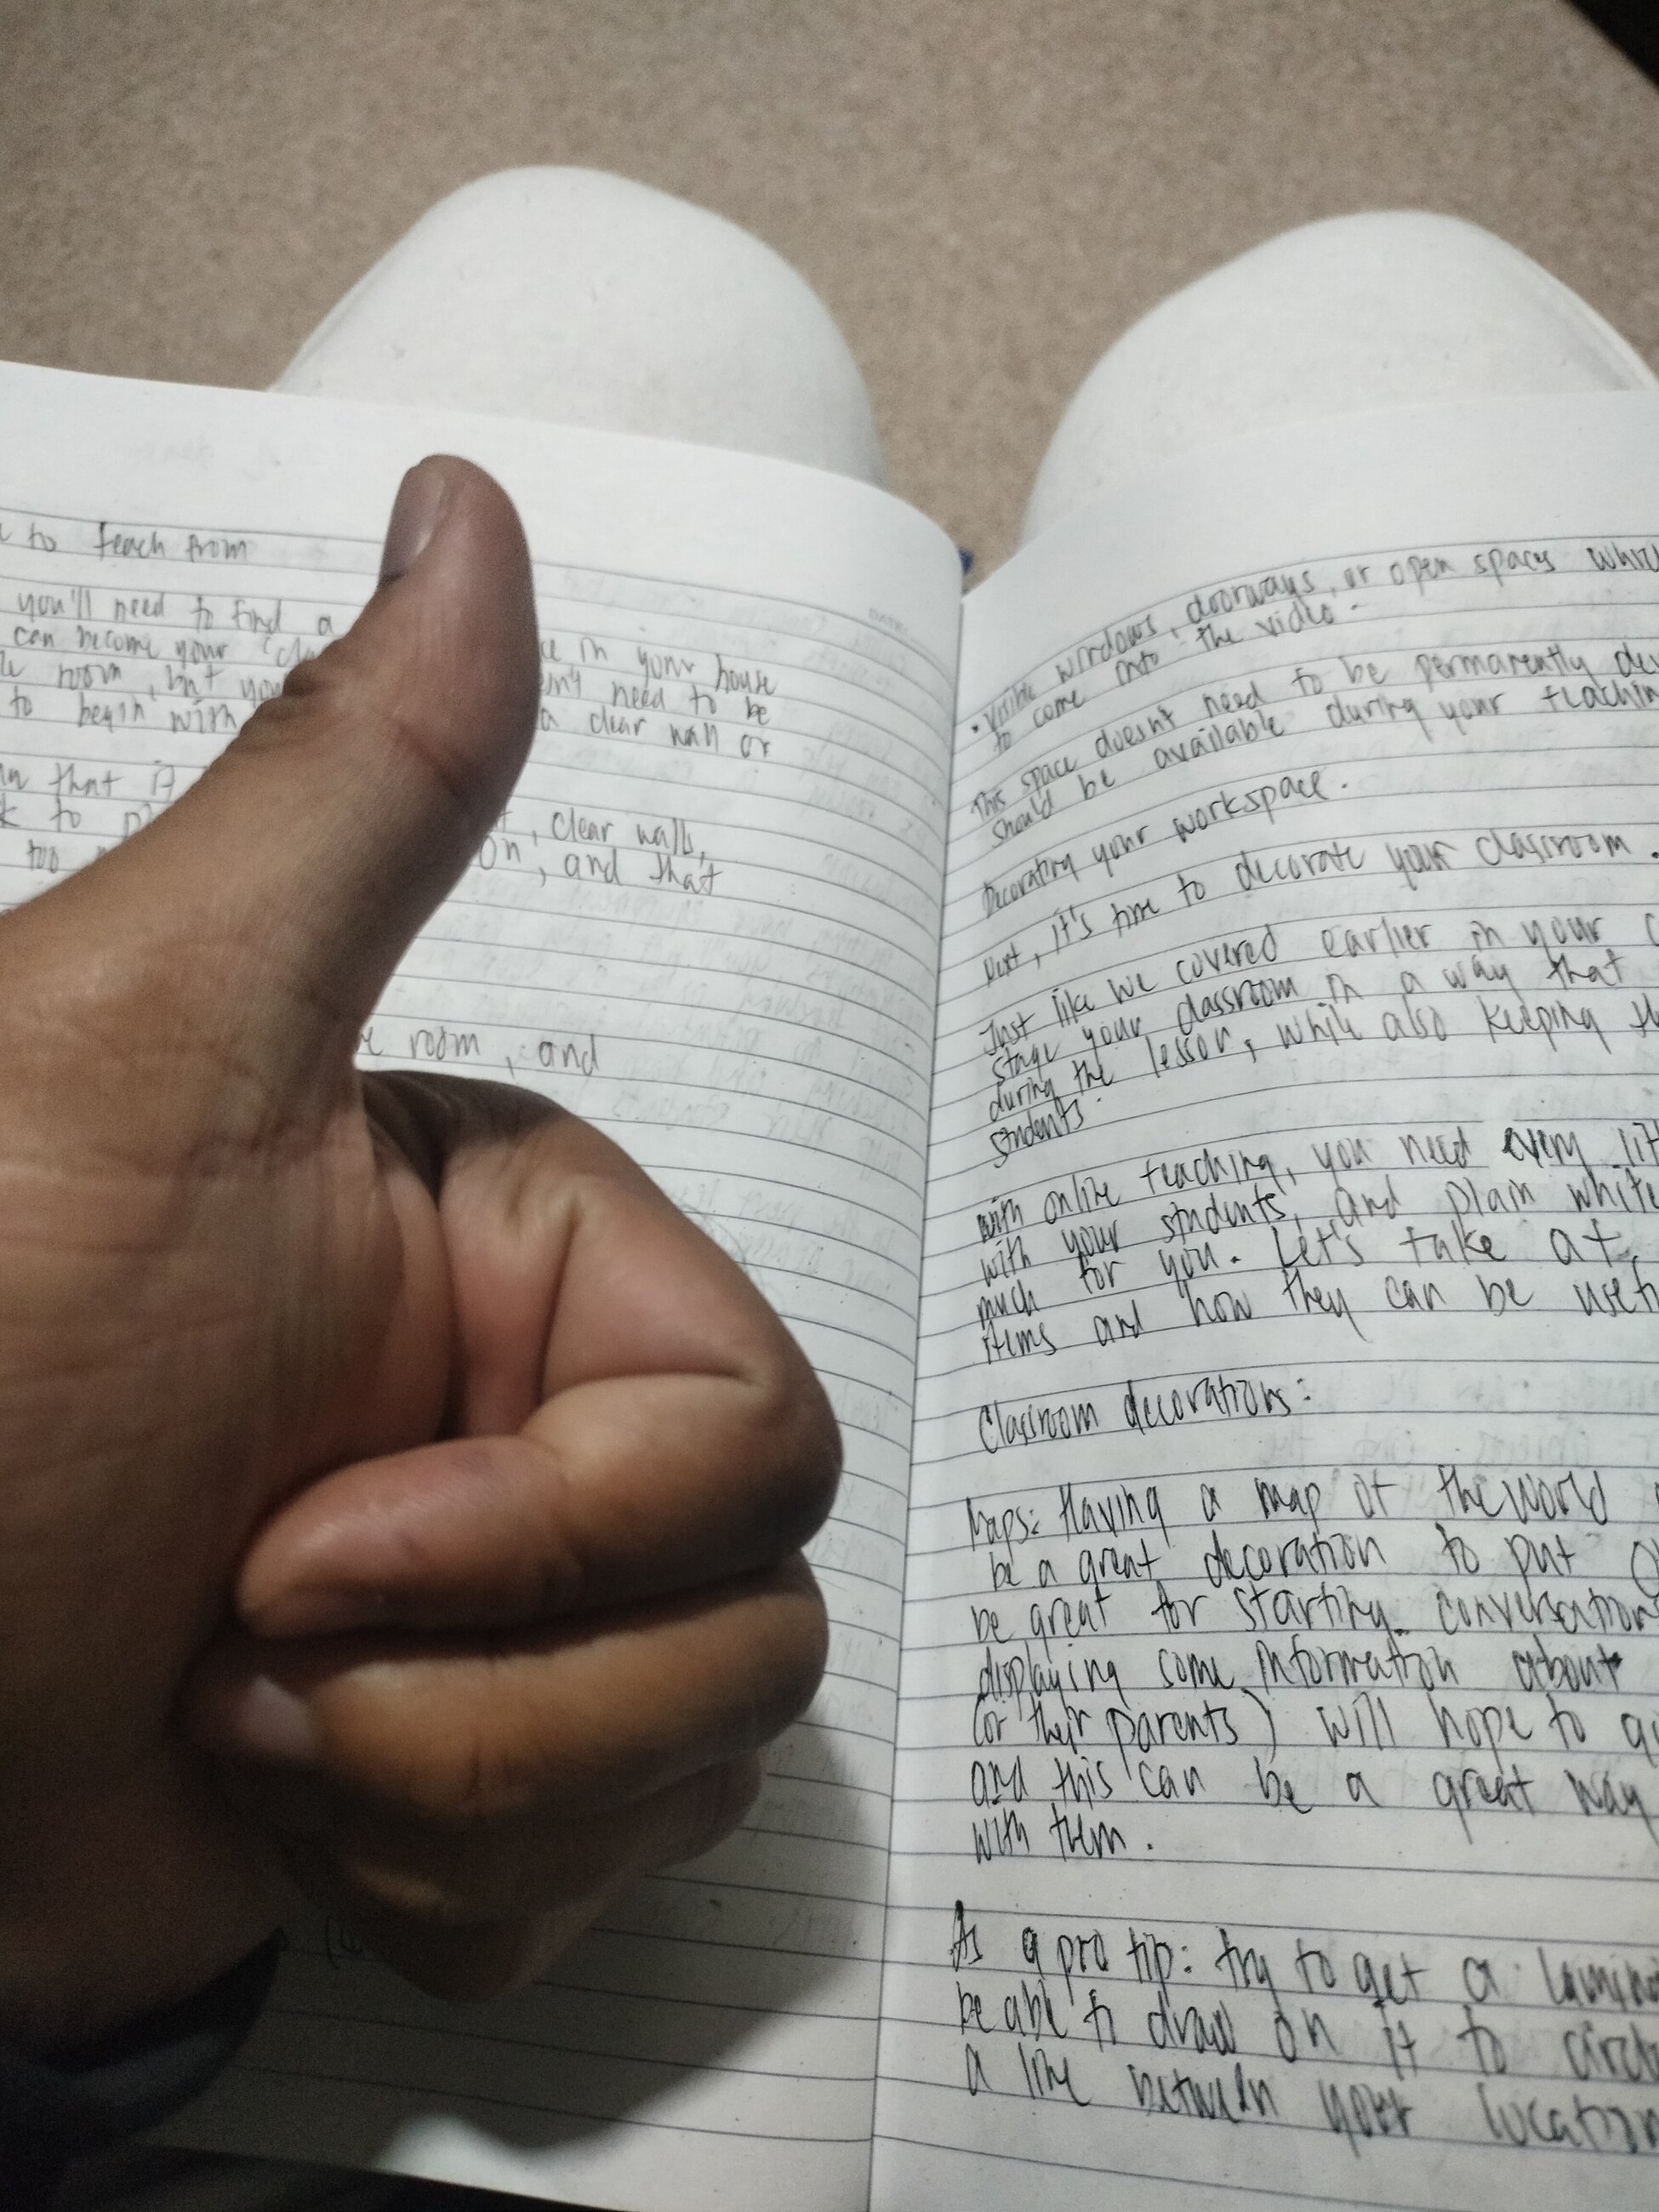 to teach from
you'll need to find a
can become your in your house
room, but you need to be
to begin with a clear wall or
that it
to clear walls,
too on, and that
room, and
• Visible windows, doorways, or open spaces
to come into the video.
This space doesn't need to be permanently
should be available during your
Decorating your workspace.
Next, it's time to decorate your classroom.
Just like we covered earlier in your
stage your classroom in a way that
during the lesson, while also keeping
students.
with online teaching, you need every
with your students, and plain white
much for you. Let's take at
items and how they can be
Classroom decorations:
Maps: Having a map of the world
be a great decoration to put
be great for starting conversation
displaying some information about
(or their parents) will hope to
and this can be a great way
with them.
As a pro tip: try to get a
be able to draw on it to
a line between your location